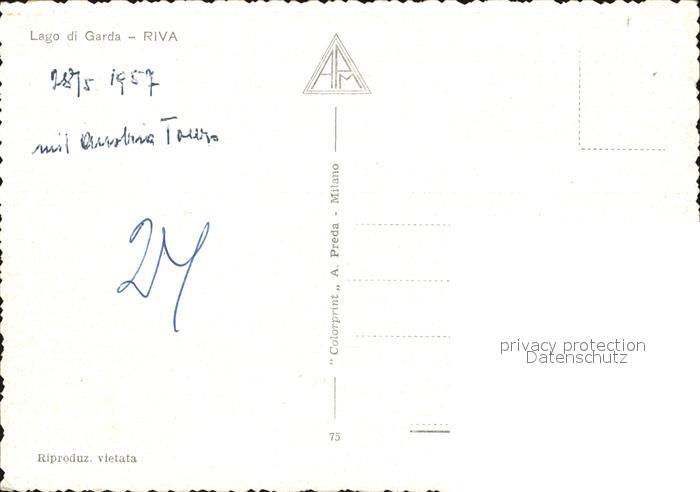 Lago di Garda – RIVA
28/5 1957
mit
24
APM
"Colorprint„ A. Preda - Milano
75
privacy protection
Datenschutz
Riproduz. vietata